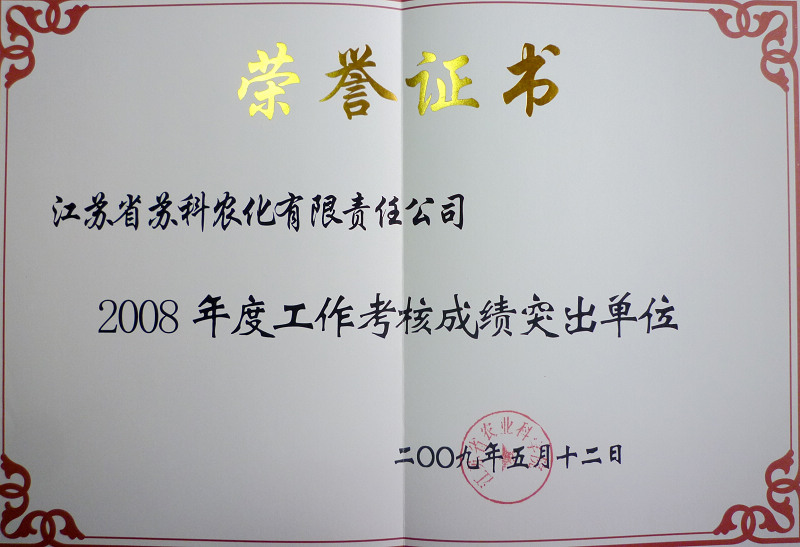 荣誉证书
江苏省苏科农化有限责任公司
2008 年度工作考核成绩突出单位
二〇〇九年五月十二日